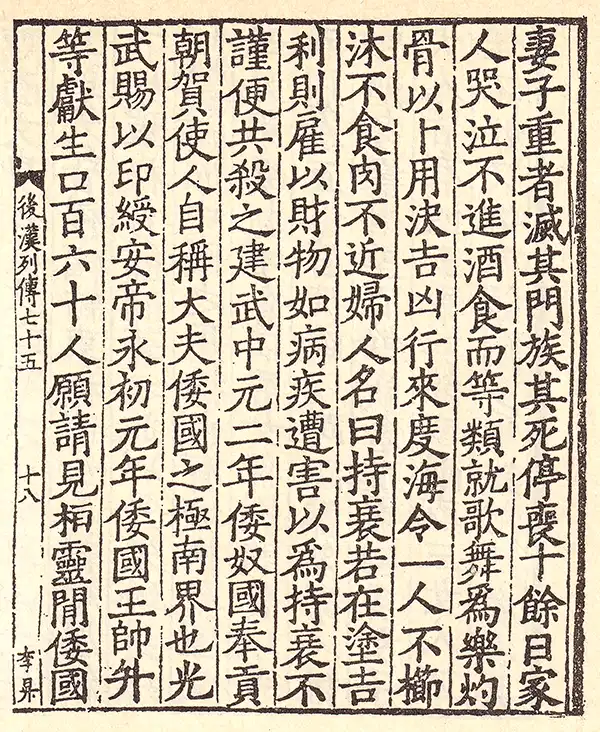 妻子重者滅其門族其死停喪十餘日家
人哭泣不進酒食而等類就歌舞爲樂灼
骨以卜用決吉凶行來度海令一人不櫛
沐不食肉不近婦人名曰持衰若在塗吉
利則雇以財物如病疾遭害以爲持衰不
謹便共殺之建武中元二年倭奴國奉貢
朝賀使人自稱大夫倭國之極南界也光
武賜以印綬安帝永初元年倭國王帥升
等獻生口百六十人願請見桓靈閒倭國
後漢列傳七十五
十八
李昇